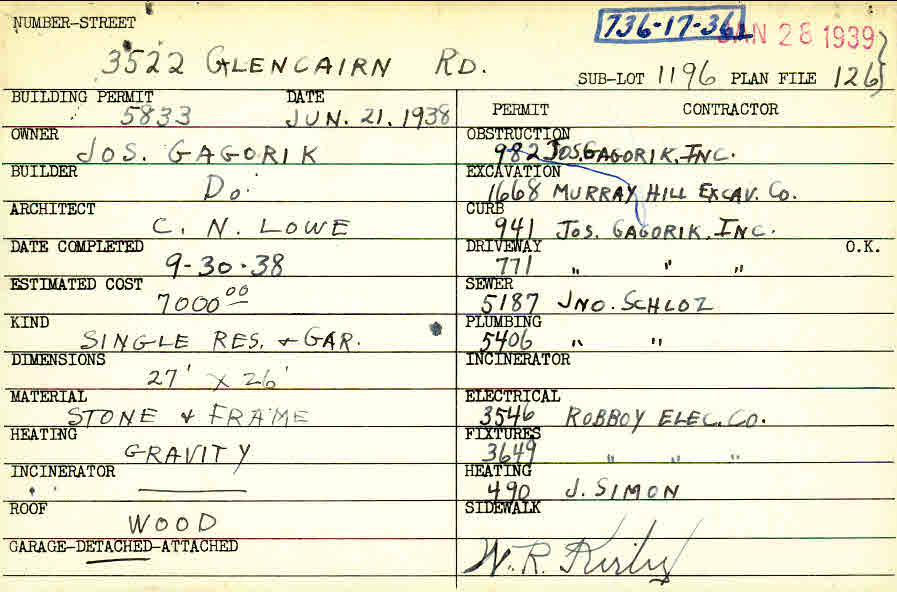 NUMBER-STREET
736-17-36
JAN 28 1939
3522 GLENCAIRN RD.
SUB-LOT 1196 PLAN FILE 126
BUILDING PERMIT DATE
5833 JUN. 21. 1938
PERMIT CONTRACTOR
OWNER
JOS. GAGORIK
OBSTRUCTION
982 JOS. GAGORIK, INC.
BUILDER
Do.
EXCAVATION
1668 MURRAY HILL EXCAV. Co.
ARCHITECT
C. N. LOWE
CURB
941 JOS. GAGORIK, INC.
DATE COMPLETED
9-30-38
DRIVEWAY O.K.
771 " " "
ESTIMATED COST
7000 00
SEWER
5187 JNO. SCHLOZ
KIND
SINGLE RES. & GAR.
PLUMBING
5406 " "
DIMENSIONS
27' x 26'
INCINERATOR
MATERIAL
STONE & FRAME
ELECTRICAL
3546 ROBBOY ELEC. CO.
HEATING
GRAVITY
FIXTURES
3649 " " "
INCINERATOR
HEATING
490 J. SIMON
ROOF
WOOD
SIDEWALK
GARAGE-DETACHED-ATTACHED
W. R. Kirby